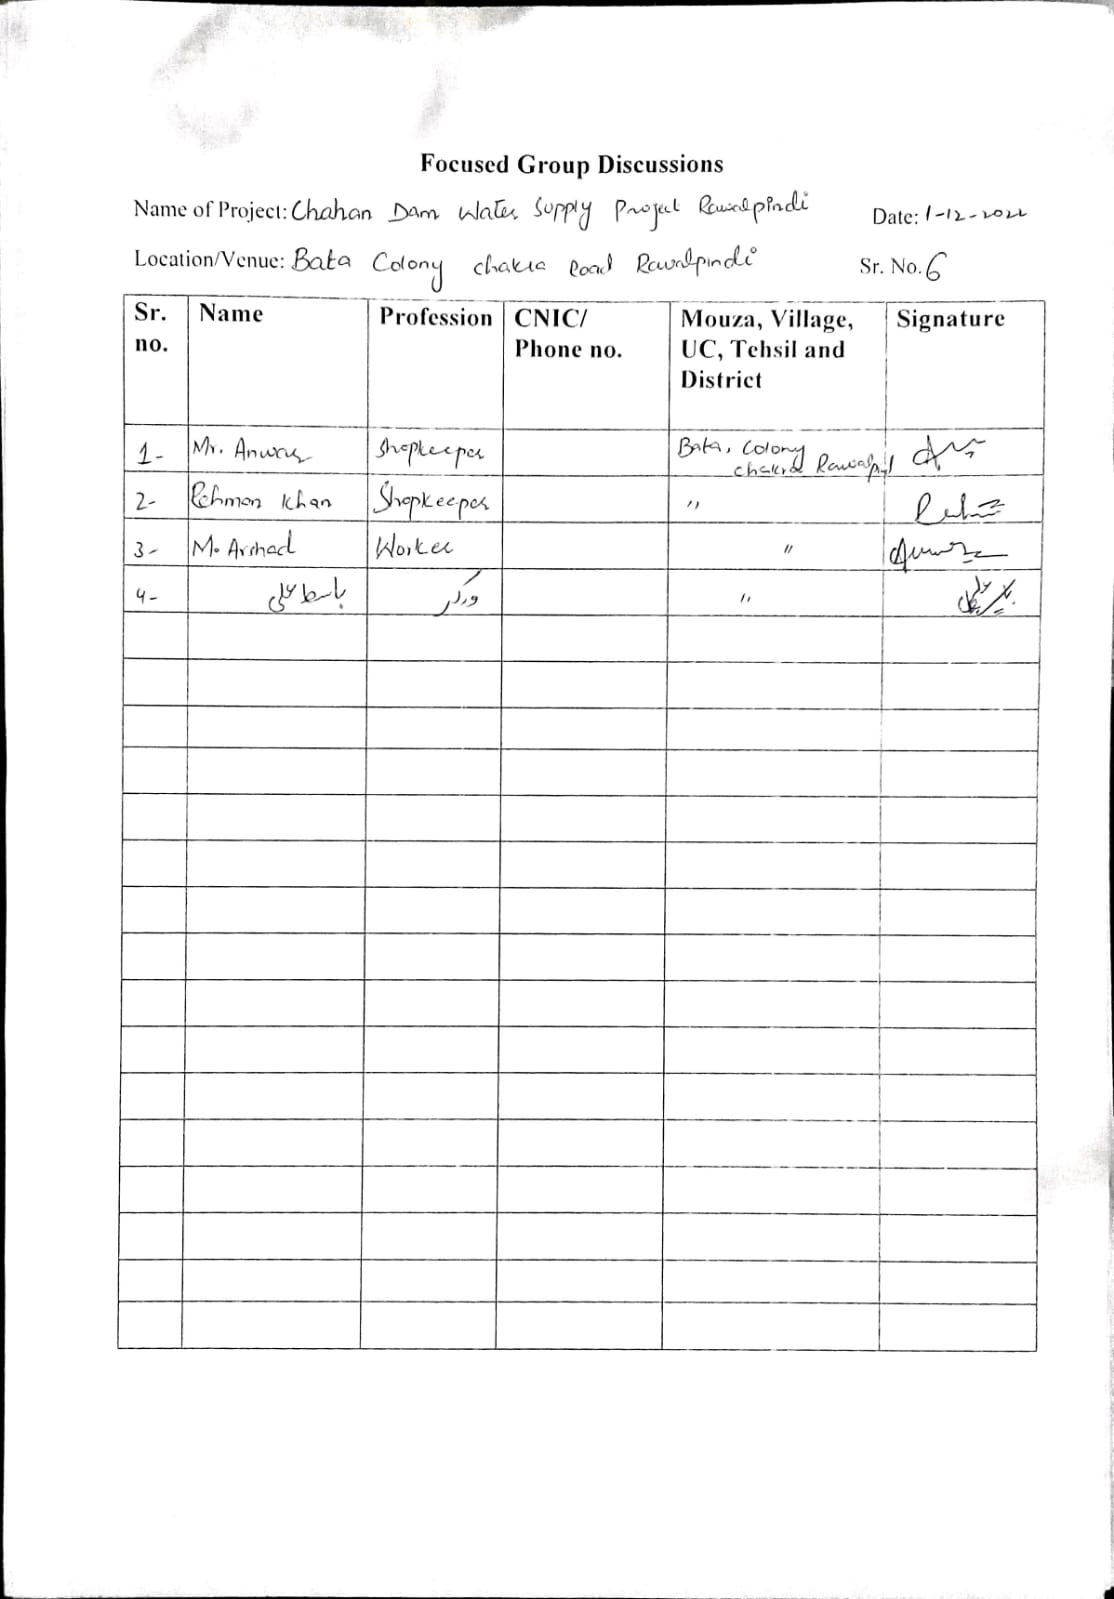 Focused Group Discussions
Name of Project: Chahan Dam Water Supply Project Rawalpindi Date: 1-12-2022
Location/Venue: Bata Colony chakra Road Rawalpindi Sr. No. 6
Sr. no. Name Profession CNIC/ Phone no. Mouza, Village, UC, Tehsil and District Signature
1- Mr. Anwar Shopkeeper Bata, Colony chakra Rawalpindi
2- Rehman Khan Shopkeeper "
3- M. Arshad Worker "
4- باسط علی ورکر "